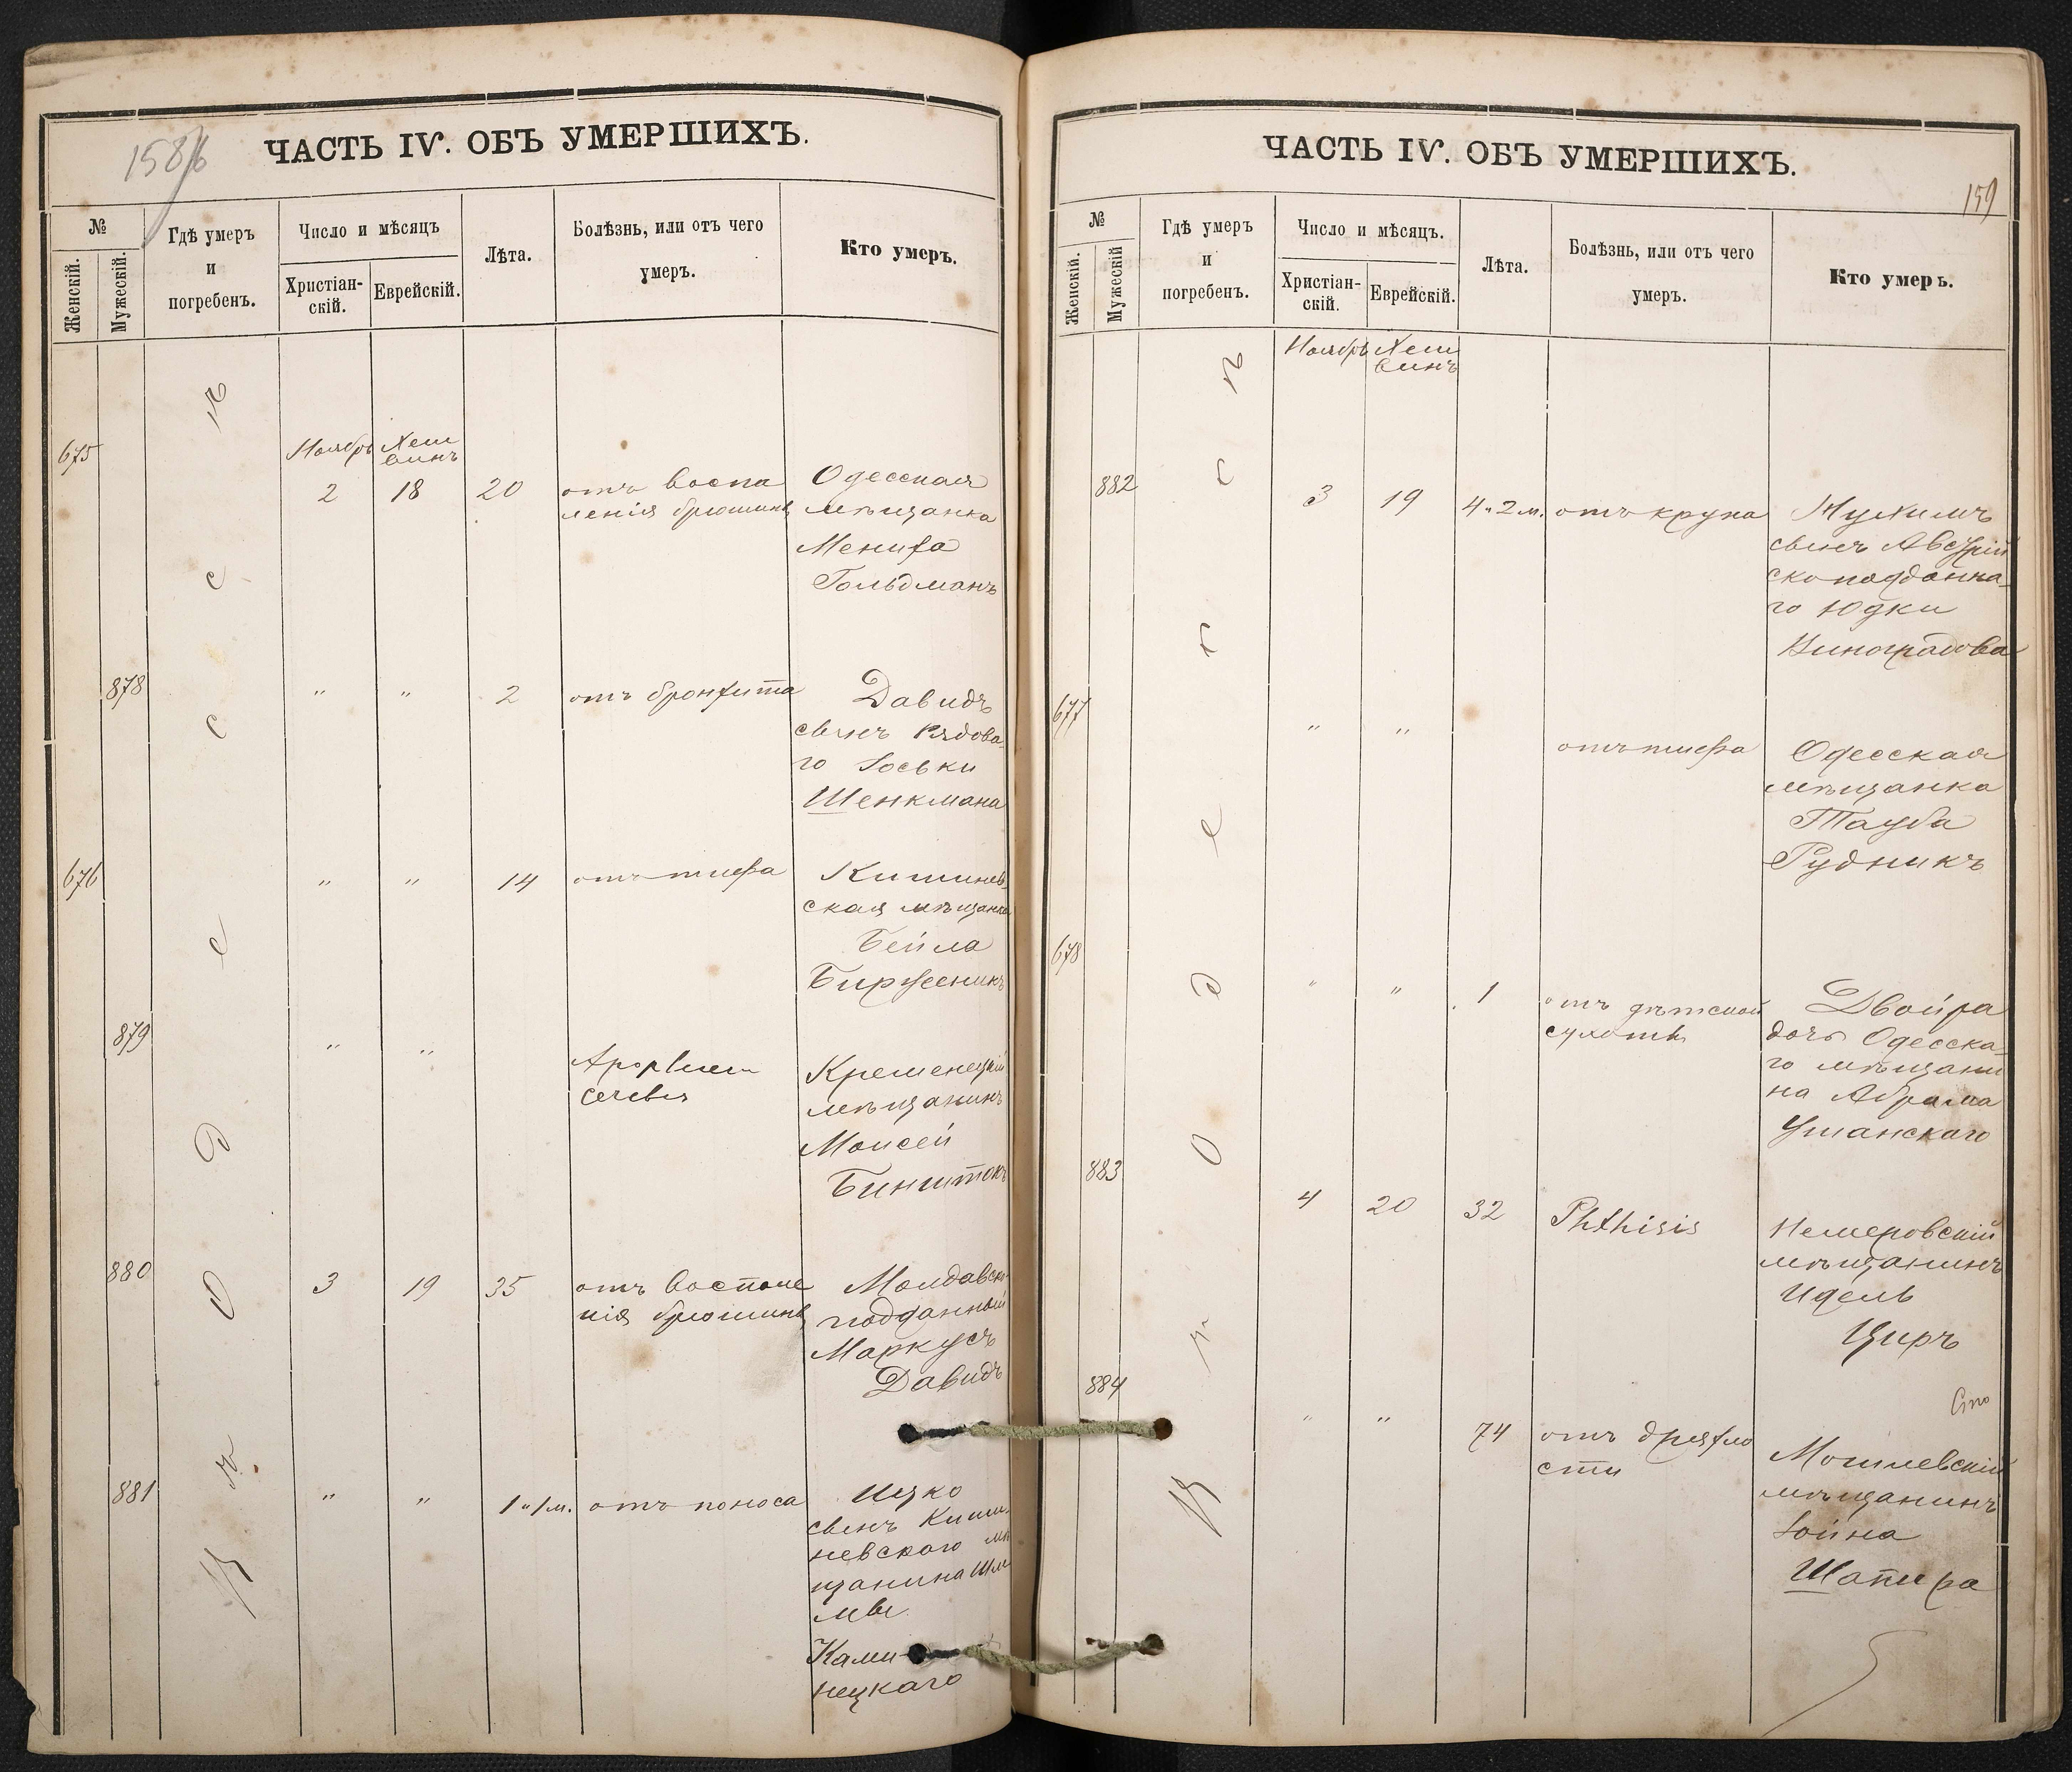 158/б
ЧАСТЬ IV. ОБЪ УМЕРШИХЪ.
№
Женскій.
Мужескій.
Гдѣ умеръ
и
погребенъ.
Число и мѣсяцъ
Христіан-
скій.
Еврейскій.
Лѣта.
Болѣзнь, или отъ чего
умеръ.
Кто умеръ.
Въ Одессѣ
675
Ноябрь Хеш
ванъ
2 18 20 отъ воспа Одесская
ленія брюшины мѣщанка
Мениха
Гольдманъ
878 " " 2 отъ бронхита Давидъ
сынъ Рядова-
го Іоськи
Шенкмана
676 " " 14 отъ тифа Кишинев-
ская мѣщанка
Бейла
Бирженикъ
879 " " Кременецкій
мѣщанинъ
Моисей
Бинштокъ
880 3 19 35 отъ воспале Молдавско-
нія брюшины подданный
Маркусъ
Давидъ
881 " " 1 " 1 м. отъ поноса Ицко
сынъ Киши-
невскаго мѣ
щанина Шле
мы
Ками-
нецкаго
ЧАСТЬ IV. ОБЪ УМЕРШИХЪ.
159
№
Женскій.
Мужескій
Гдѣ умеръ
и
погребенъ.
Число и мѣсяцъ.
Христіан-
скій.
Еврейскій.
Лѣта.
Болѣзнь, или отъ чего
умеръ.
Кто умеръ.
Въ Одессѣ
Ноябрь Хеш
ванъ
882 3 19 4 " 2 м. отъ крупа Нухимъ
сынъ Австрій
скоподданна-
го Юдки
Виноградова
677 " " отъ тифа Одесская
мѣщанка
Тауба
Рудникъ
678 " " 1 отъ дѣтской Двойра
сухоты дочь Одесска-
го мѣщани
на Абрама
Уманскаго
883 4 20 32 Phthisis Немеровскій
мѣщанинъ
Идель
Циръ
884 " " 74 отъ дряхло Могилевскій
сти мѣщанинъ
Іойна
Шапира